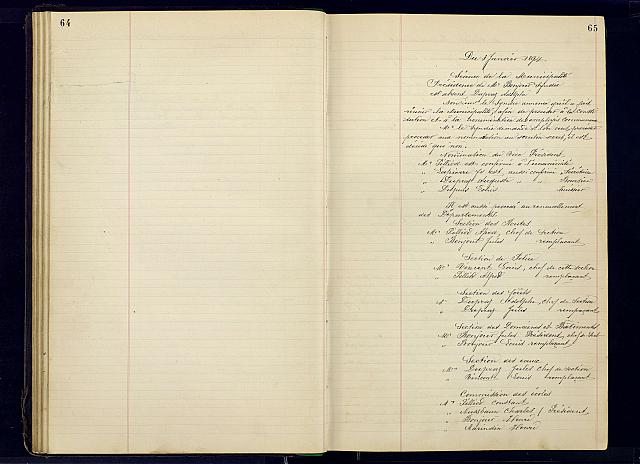 64
65
Du 5 Janvier 1894.
Séance de la Municipalité
Présidence de Mr Bonjour Syndic
est absent Dupraz Adolphe
Monsieur le Syndic annonce qu'il a
réunir la Municipalité afin de procéder à la
et à la nomination des employés
Mr le Syndic demande si l'on veut procéder
aux nominations au scrutin secret, il est
décidé que non.
Nomination du Vice Président
Mr Pilliod est confirmé à l'unanimité
" est aussi confirmé Secrétaire
" Dupraz Auguste " " Boursier
" Louis huissier
Il est aussi procédé au renouvellement
des Départements
Section des Routes
Mr Pilliod Alfred, chef de section
" Bonjour Jules remplaçant
Section de Police
Mr Vincent Louis, chef de cette section
" Pilliod Alfred remplaçant
Section des forêts
Mr Dupraz Adolphe, chef de section
" Dupraz Jules remplaçant
Section des Domaines et Bâtiments
Mr Bonjour Jules Président, chef de
" Louis remplaçant
Section des eaux
Mr Dupraz Jules chef de section
" Vincent Louis remplaçant
Commission des écoles
Mr Pilliod Constant
" Nussbaum Charles Président,
" Bonjour Henri
" Henri